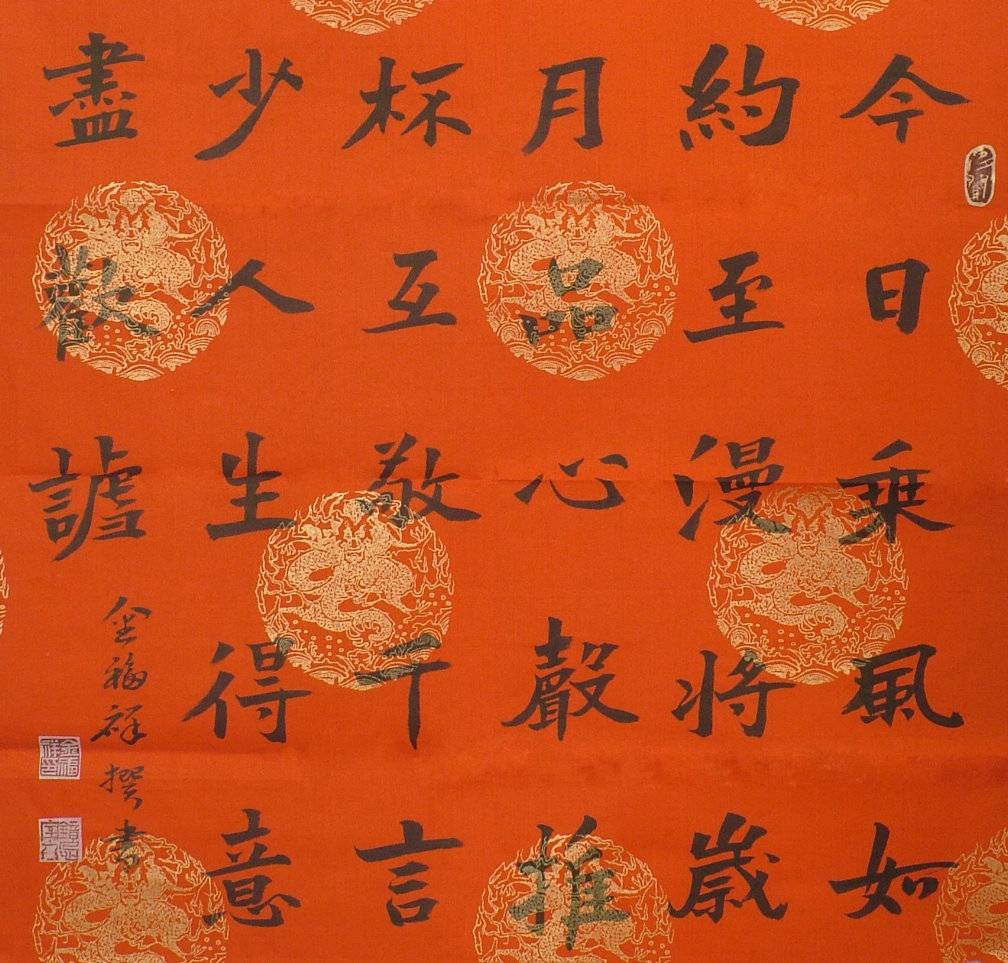 今日乘風如
約至漫將歲
月品心聲推
杯互敬千言
少人生得意
盡歡謔
金福祥撰書